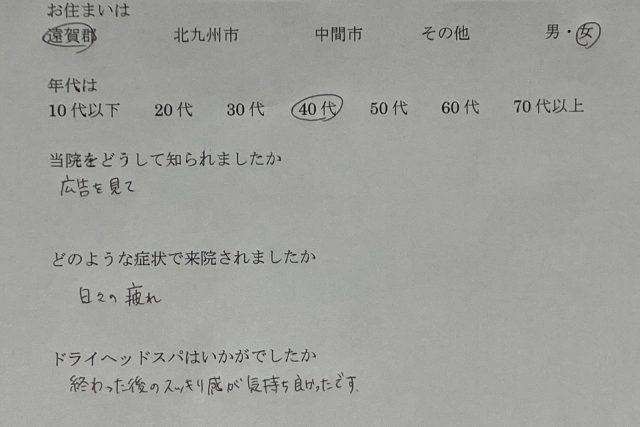 お住まいは
遠賀郡 北九州市 中間市 その他 男・女
年代は
10代以下 20代 30代 40代 50代 60代 70代以上
当院をどうして知られましたか
広告を見て
どのような症状で来院されましたか
日々の疲れ
ドライヘッドスパはいかがでしたか
終わった後のスッキリ感が気持ち良かったです。